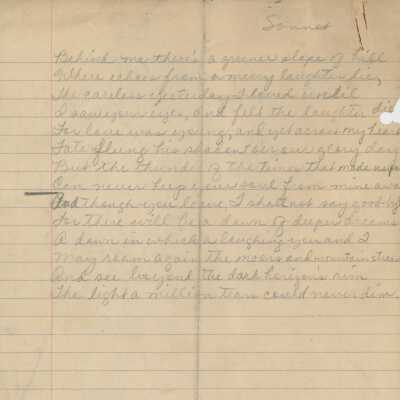 Sonnet
Behind me there's a greener slope of hill
Where echoes from a merry laughter die,
The careless yesterday I loved until
I saw your eyes, and felt the laughter die
For love was young, and yet across my heart
Fate flung his shadow our glory day
But the thunder of the times that made us part
Can never keep your soul from mine away
And though you leave, I shall not say good-by
For there will be a dawn of deeper dreams
A dawn in which a laughing you and I
May roam again the moors and mountain streams
And see beyond the dark horizon's rim
The light a million tears could never dim.